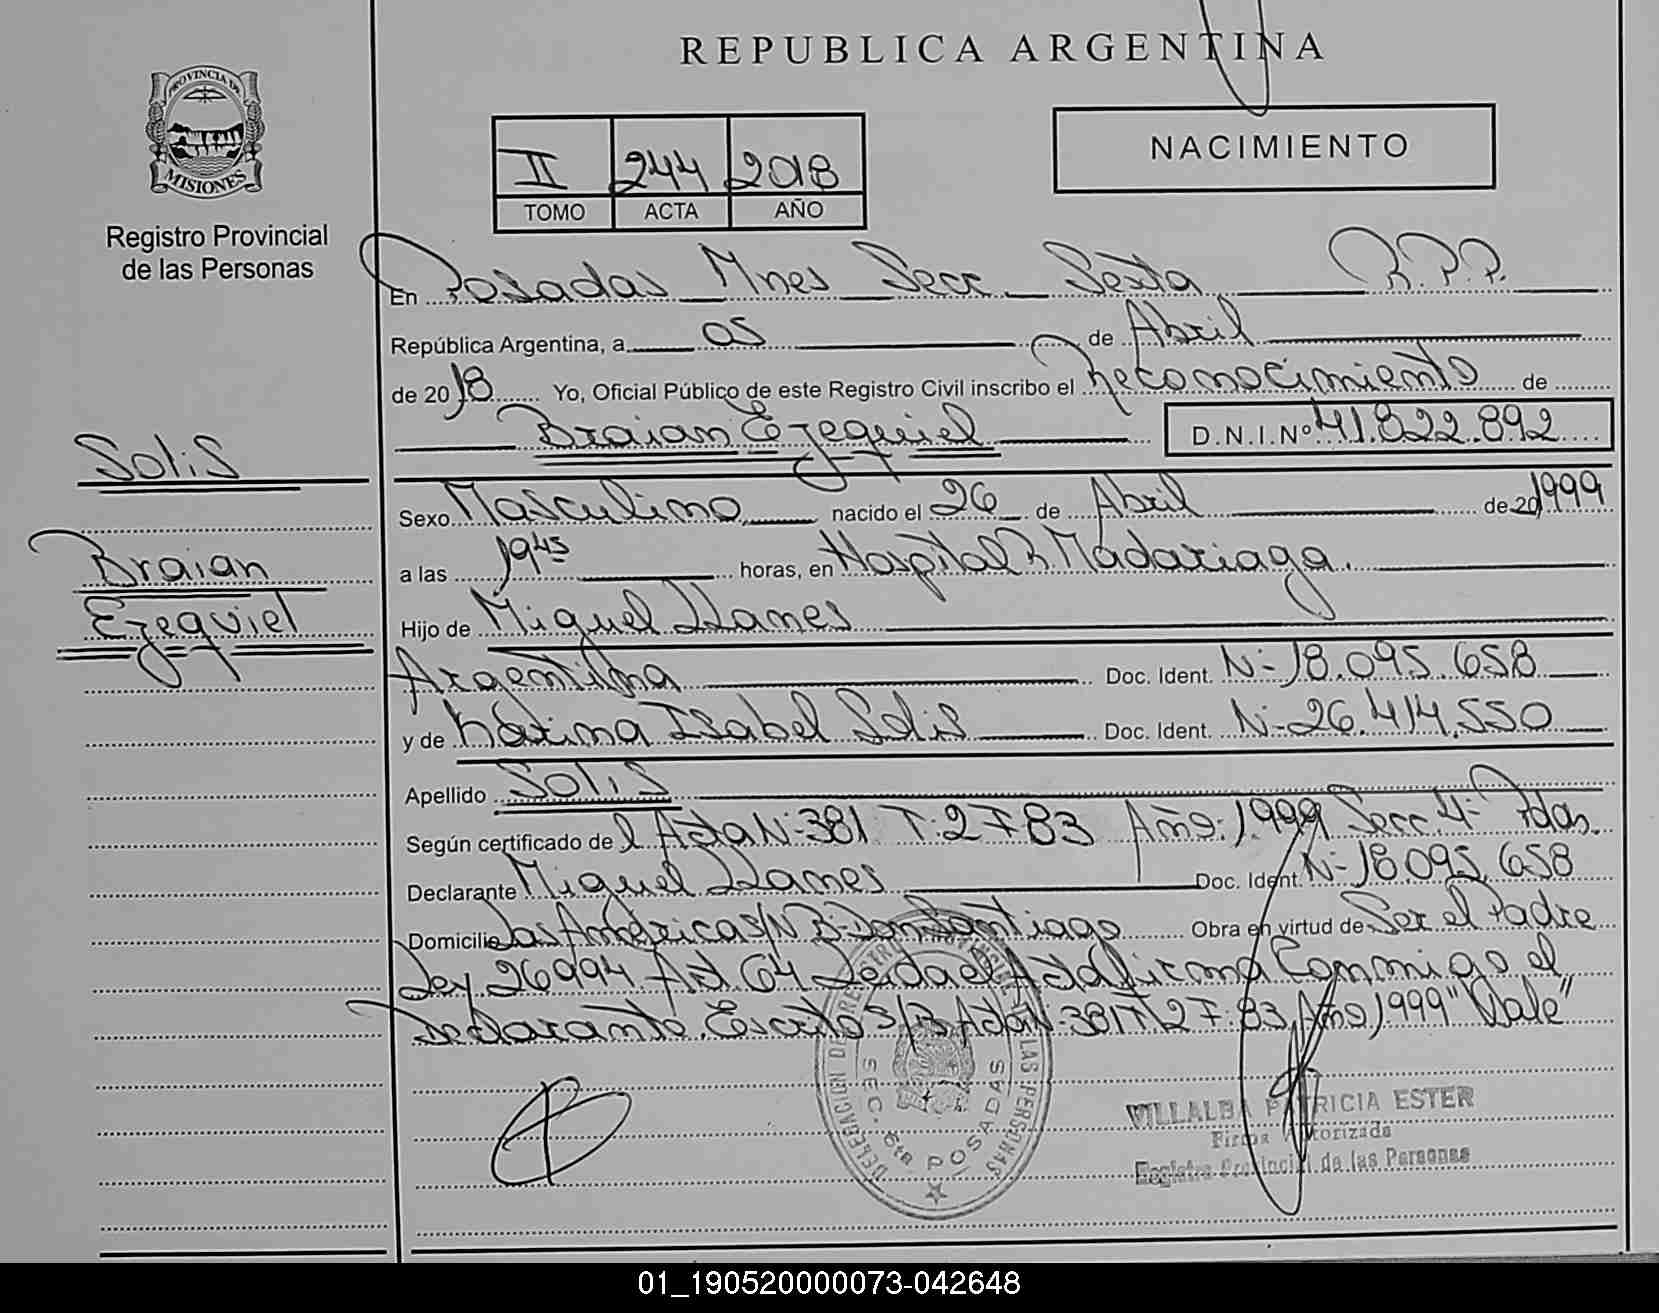 REPUBLICA ARGENTINA
PROVINCIA DE
MISIONES
Registro Provincial
de las Personas
II 244 2018
TOMO ACTA AÑO
NACIMIENTO
En Posadas Mnes Secc. Sexta R.P.P.
República Argentina, a 05 de Abril
de 2018 Yo, Oficial Público de este Registro Civil inscribo el Reconocimiento de
Braian Ezequiel D.N.I.Nº 41.822.892
Solis
Braian
Ezequiel
Sexo Masculino nacido el 26 de Abril de 20 1999
a las 19 45 horas, en Hospital R. Madariaga.
Hijo de Miguel Llanes
Argentina Doc. Ident. Nº 18.095.658
y de Karina Isabel Solis Doc. Ident. Nº 26.414.550
Apellido Solis
Según certificado de l Acta Nº 381 T: 2 F 83 Año: 1.999 Secc. 4ª Pdas.
Declarante Miguel Llanes Doc. Ident. Nº 18.095.658
Domicilio Las Américas S/N Bº Don Santiago Obra en virtud de Ser el Padre
Ley 26994 Art. 64 Leida el Acta firma Conmigo el
Declarante. Escrito S/B Acta Nº 381 T: 2 F: 83 Año 1999 "Vale"
DELEGACIÓN DEL REGISTRO PROVINCIAL DE LAS PERSONAS
SEC. 6ta POSADAS
VILLALBA PATRICIA ESTER
Firma Autorizada
Registro Provincial de las Personas
01_190520000073-042648